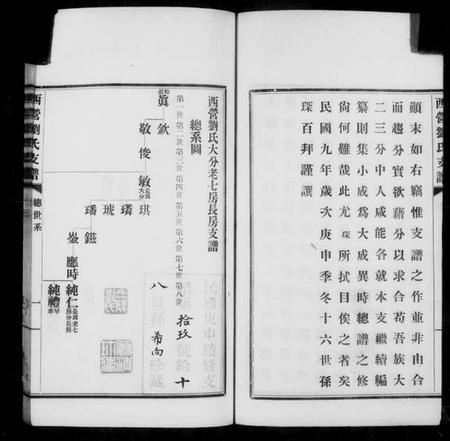 西營劉氏支譜
顛末如右竊惟支譜之作並非由合
而趨分實欲藉分以求合苟吾族大
二三分中人咸能各就本支繼續編
纂則集小成爲大成異時總譜之修
尙何難哉此尤琛所拭目俟之者矣
民國九年歲次庚申季冬十六世孫
琛百拜謹撰
西營劉氏大分老七房長房支譜
總系圖
第一世第二世第三世第四世第五世第六世第七世第八世
始祖
眞
欽
敬
俊
敏
是爲大分
琪
璘
琥
璠
鎡
崟
應時
純仁
是爲老七房分長房
純禮
早卒
民國庚申續修支
拾玖號給十
八世孫希向珍藏
西營劉氏支譜
總世系
一